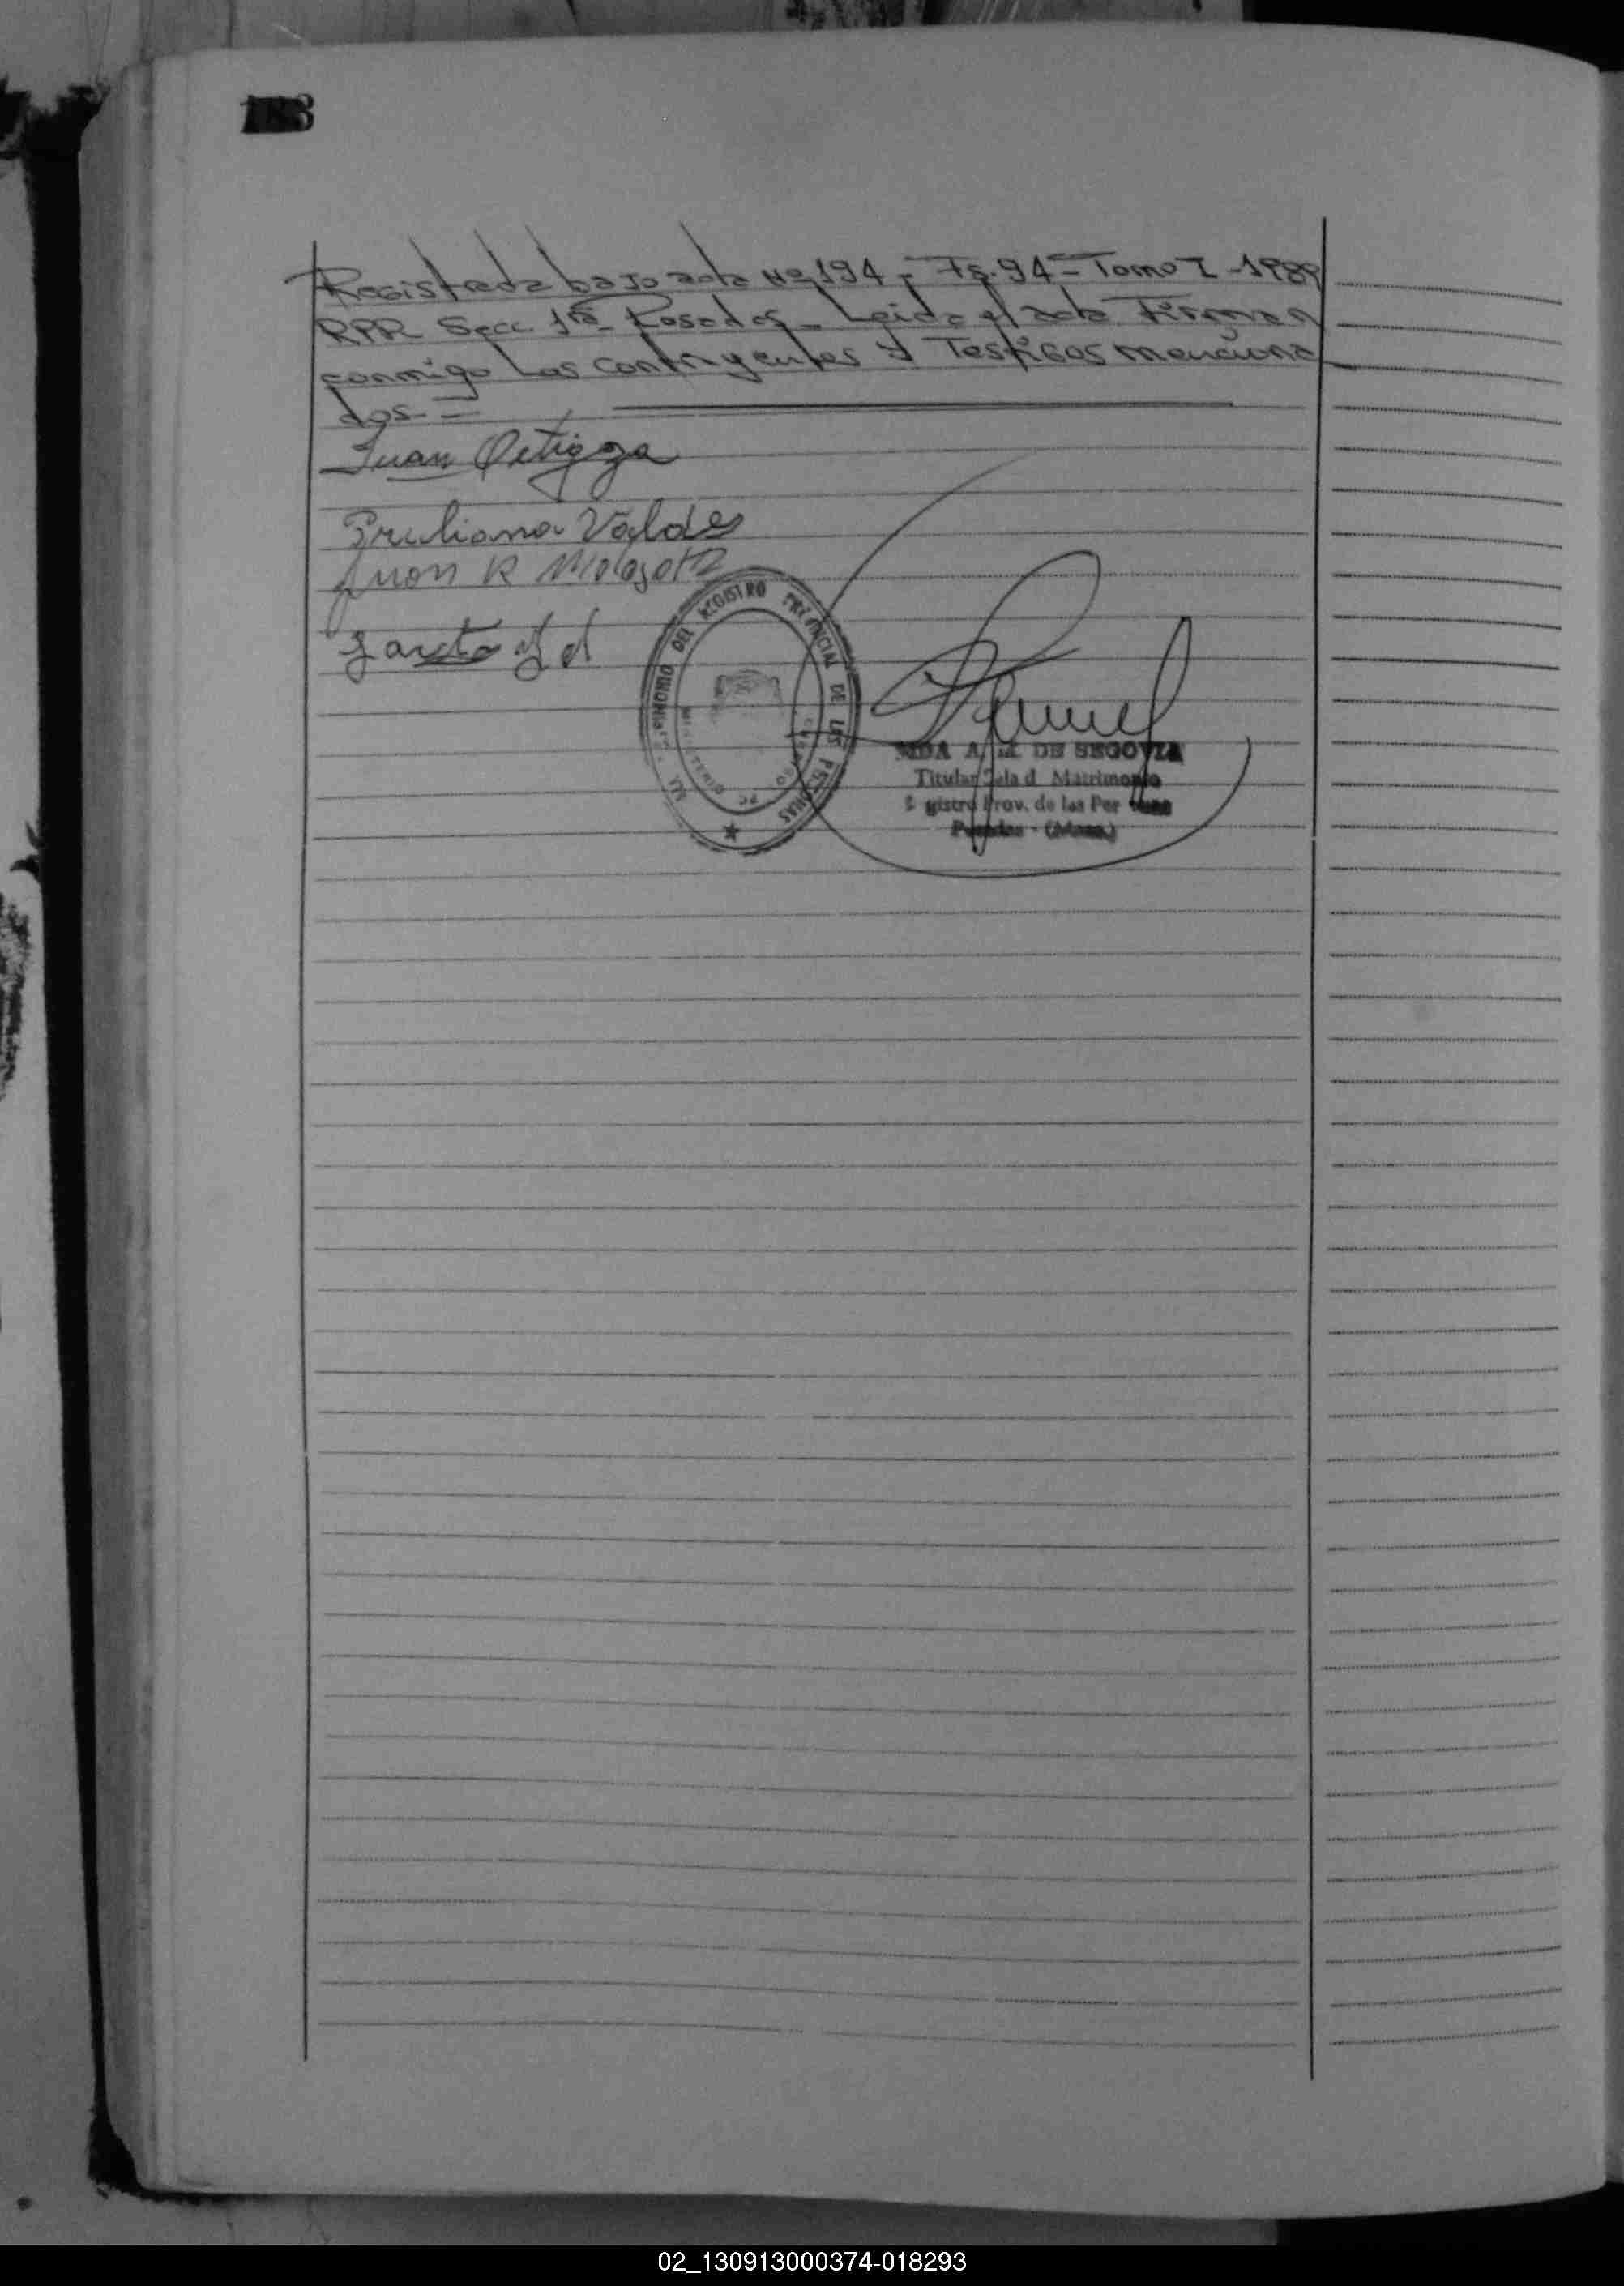 Registrada bajo acta Nº 194 - Fs. 94 - Tomo I - 1989
RPR Secc 1ra Posadas - Leida el acta Firman
conmigo Los contrayentes y Testigos menciona
dos - =
Juan Ortigoza
Valdes
Juan R
SALA MATRIMONIO DEL REGISTRO PROVINCIAL DE LAS PERSONAS
MINISTERIO DE GOBIERNO
DE SEGOVIA
Titular Sala d Matrimonio
gistro Prov. de las Per
Posadas - (Mnes.)
02_130913000374-018293